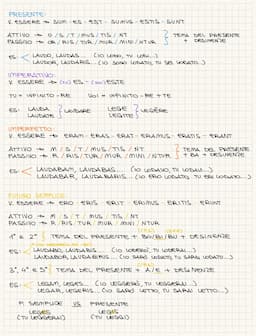 PRESENTE:
V. ESSERE → SUM - ES - EST - SUMUS - ESTIS - SUNT
ATTIVO → O / S / T / MUS / TIS / NT } TEMA DEL PRESENTE
PASSIVO → OR / RIS / TUR / MUR / MINI / NTUR + DESINENZE
ES: < LAUDO, LAUDAS... (IO LODO, TU LODI...)
LAUDOR, LAUDARIS... (IO SONO LODATO, TU SEI LODATO...)
IMPERATIVO:
V. ESSERE → ES - ESTE
TU = INFINITO - RE VOI = INFINITO - RE + TE
ES: LAUDA } LAUDARE LEGE } LEGĔRE
LAUDATE LEGITE
IMPERFETTO:
V. ESSERE → ERAM - ERAS - ERAT - ERAMUS - ERATIS - ERANT
ATTIVO → M / S / T / MUS / TIS / NT } TEMA DEL PRESENTE
PASSIVO → R / RIS / TUR / MUR / MINI / NTUR + BA + DESINENZE
ES: < LAUDABAM, LAUDABAS... (IO LODAVO, TU LODAVI...)
LAUDABAR, LAUDABARIS... (IO ERO LODATO, TU ERI LODATO...)
FUTURO SEMPLICE:
V. ESSERE → ERO - ERIS - ERIT - ERIMUS - ERITIS - ERUNT
ATTIVO → M / S / T / MUS / TIS / NT
PASSIVO → R / RIS / TUR / MUR / MINI / NTUR
1ª E 2ª TEMA DEL PRESENTE + BO/BI/BU + DESINENZE
ES: < LAUDABO, LAUDABIS... (IO LODERÒ, TU LODERAI...)
LAUDABOR, LAUDABERIS... (IO SARÒ LODATO, TU SARAI LODATO...)
3ª, 4ª E 5ª TEMA DEL PRESENTE + A/E + DESINENZE
ES: < LEGAM, LEGES... (IO LEGGERÒ, TU LEGGERAI...)
LEGAR, LEGERIS... (IO SARÒ LETTO, TU SARAI LETTO...)
F. SEMPLICE VS PRESENTE
LEGES LEGIS
(TU LEGGERAI) (TU LEGGI)